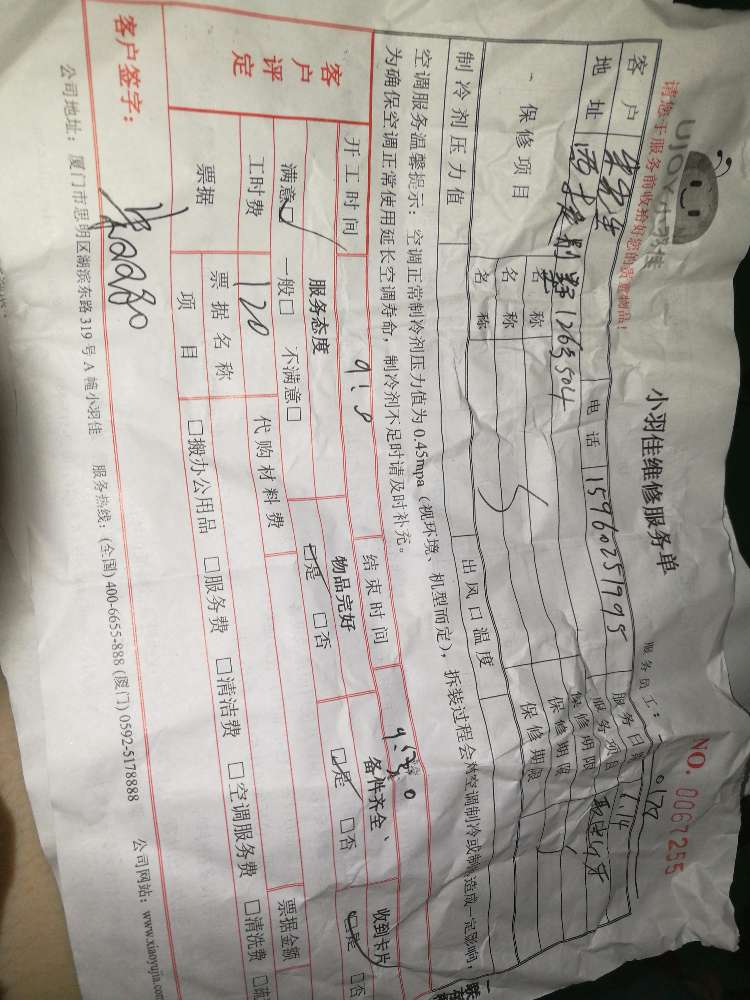 UJOY小羽佳
请您于服务前收拾好您的贵重物品!
小羽佳维修服务单
NO. 0067255
服务员工:
客户
电话 15960251995
服务日期
地址
服务项目
保修项目 名称 保修期限
名称 保修期限
名称 保修期限
制冷剂压力值 出风口温度
空调服务温馨提示:空调正常制冷剂压力值为0.45mpa(视环境、机型而定),拆装过程会将空调制冷或制 造成一定影响,
为确保空调正常使用延长空调寿命,制冷剂不足时请及时补充。
开工时间 结束时间
客户评定 服务态度 物品完好 备件齐全、 收到卡片
满意☑ 一般□ 不满意□ ☑是 □否 ☑是 □否 ☑是 □否
工时费 120 代购材料费 票据金额
票据 票据名称
项目 □搬办公用品 □服务费 □清洁费 □空调服务费 □清洗费
客户签字:
公司地址:厦门市思明区湖滨东路319号A幢小羽佳 服务热线:(全国)400-6655-888 (厦门)0592-5178888 公司网站:www.xiaoyujia.com